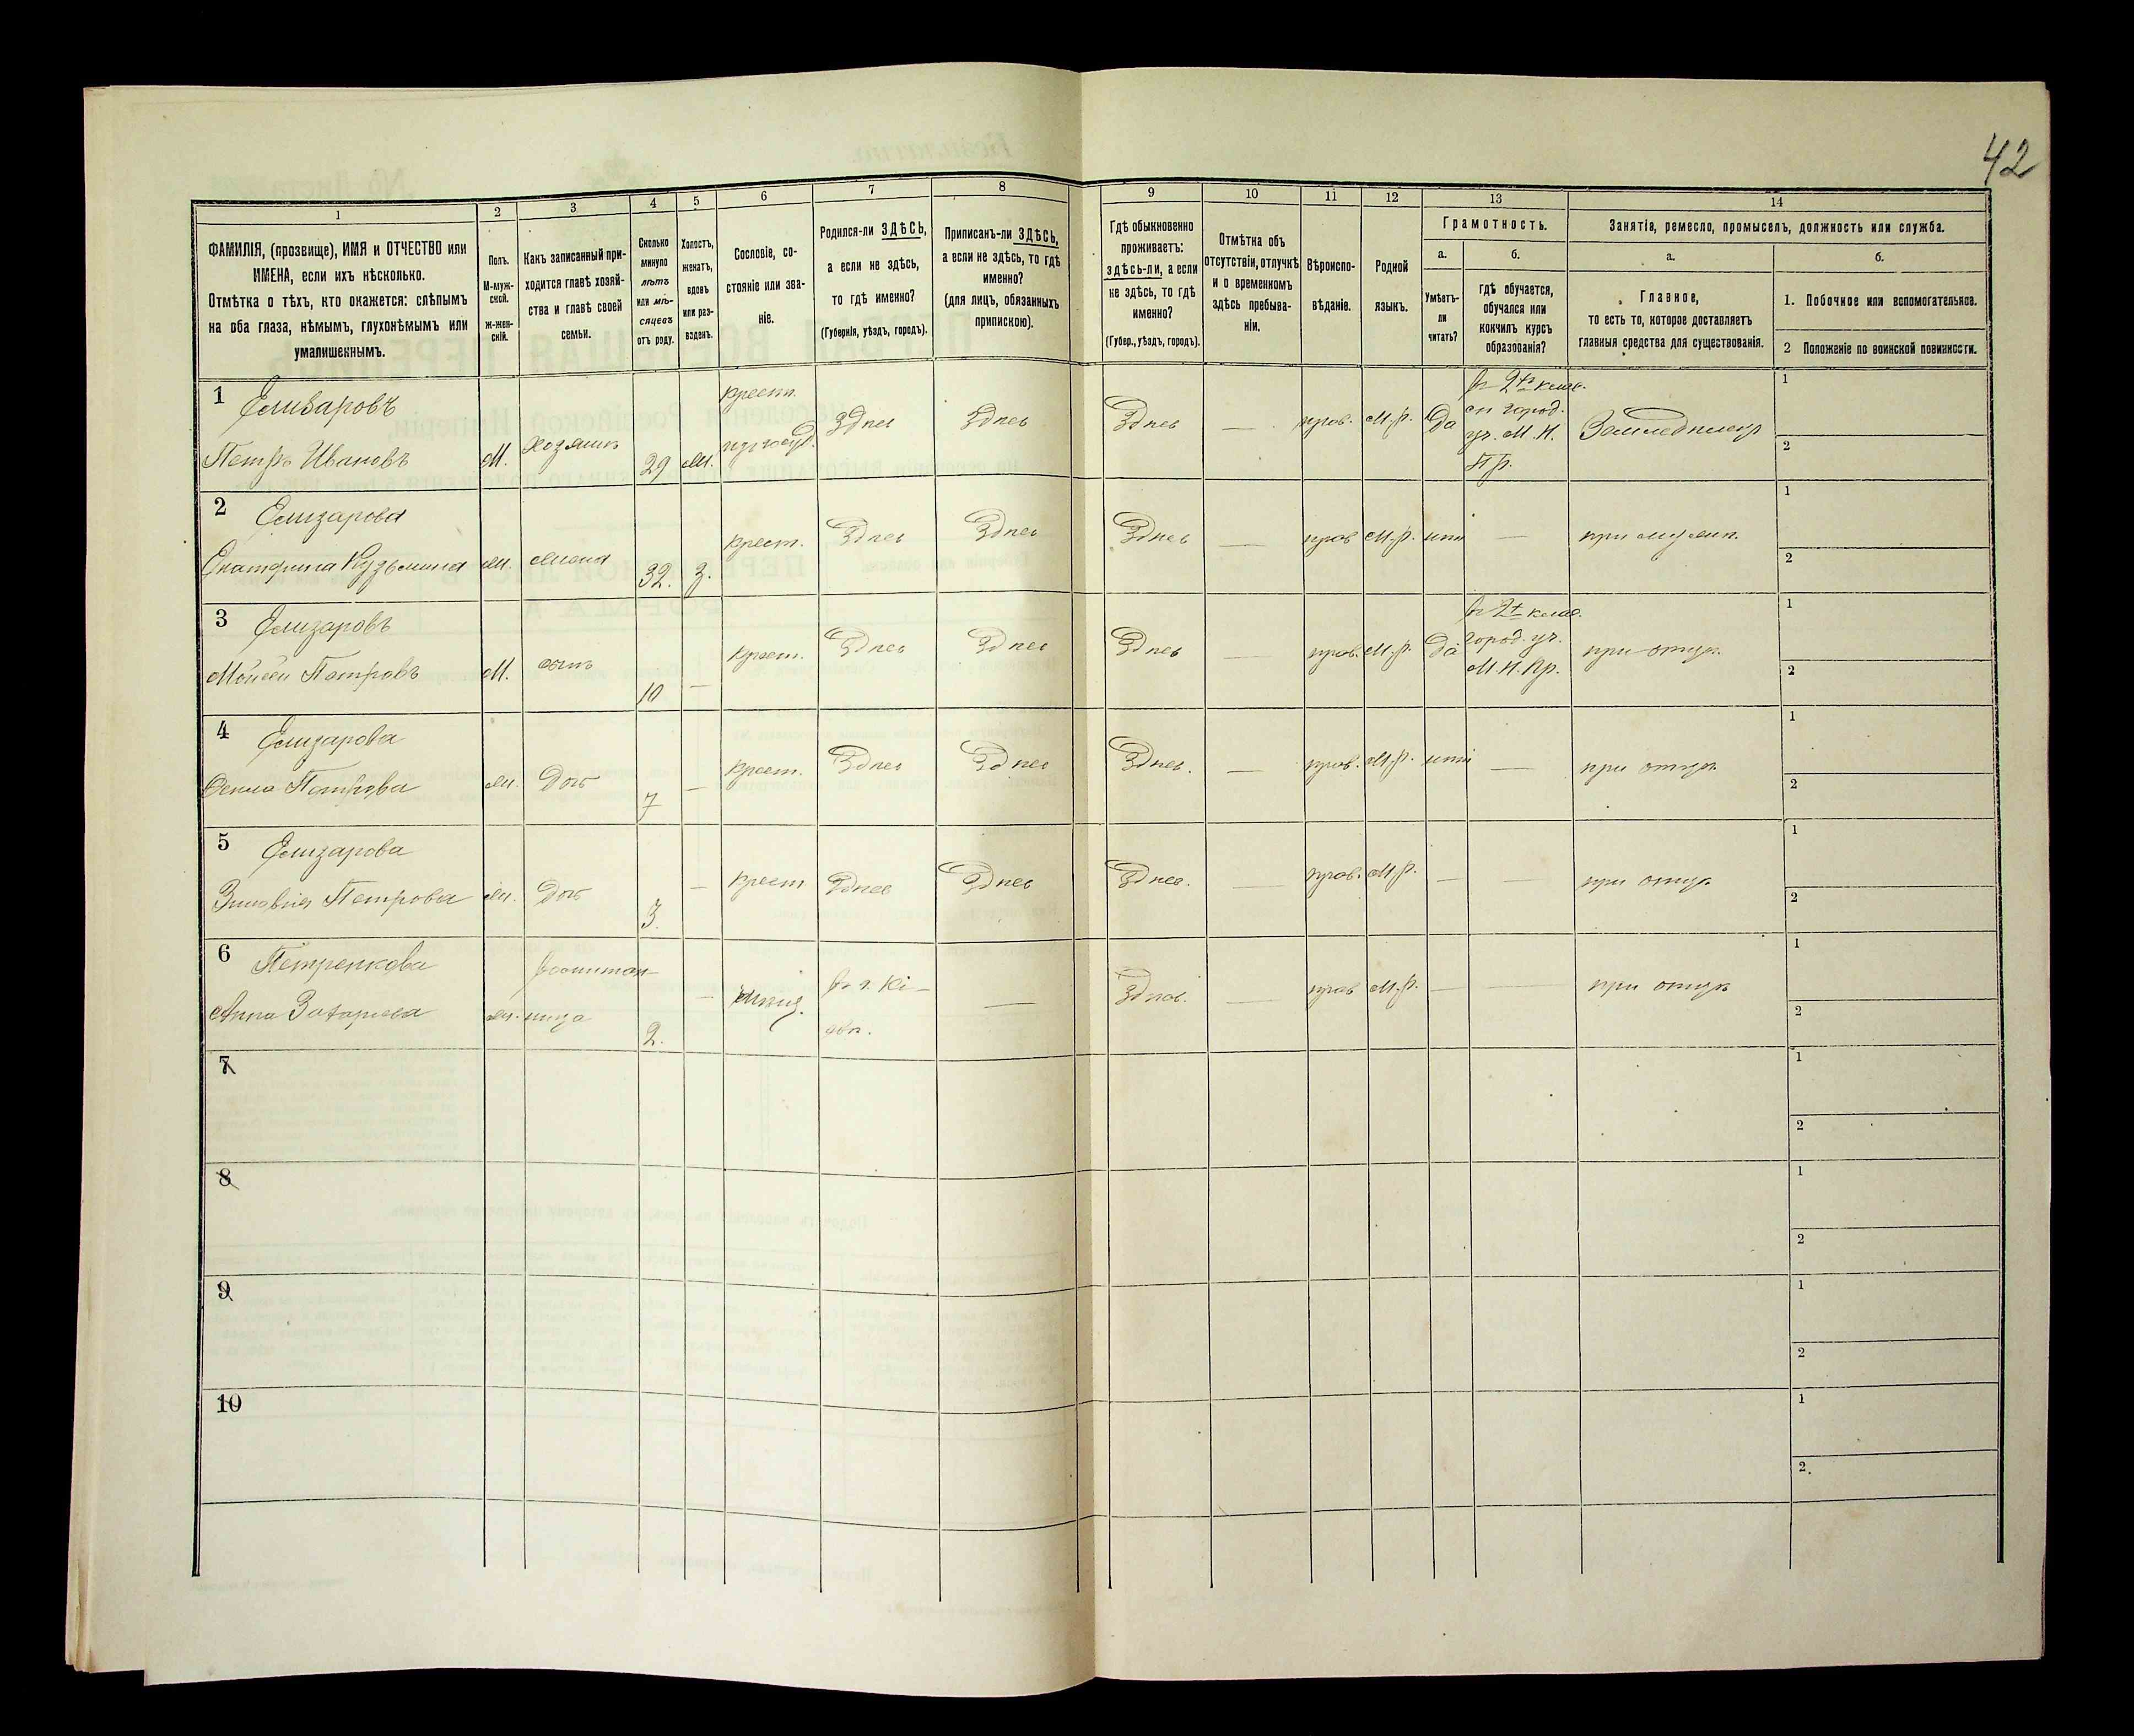 42
1
2
3
4
5
6
7
8
9
10
11
12
13
14
ФАМИЛІЯ, (прозвище), ИМЯ и ОТЧЕСТВО или
ИМЕНА, если ихъ нѣсколько.
Отмѣтка о тѣхъ, кто окажется: слѣпымъ
на оба глаза, нѣмымъ, глухонѣмымъ или
умалишеннымъ.
Полъ.
М-муж-
ской.
Ж-жен-
скій.
Какъ записанный при-
ходится главѣ хозяй-
ства и главѣ своей
семьи.
Сколько
минуло
лѣтъ
или мѣ-
сяцевъ
отъ роду.
Холостъ,
женатъ,
вдовъ
или раз-
веденъ.
Сословіе, со-
стояніе или зва-
ніе.
Родился-ли ЗДѢСЬ,
а если не здѣсь,
то гдѣ именно?
(Губернія, уѣздъ, городъ).
Приписанъ-ли ЗДѢСЬ,
а если не здѣсь, то гдѣ
именно?
(для лицъ, обязанныхъ
припискою).
Гдѣ обыкновенно
проживаетъ:
здѣсь-ли, а если
не здѣсь, то гдѣ
именно?
(Губер., уѣздъ, городъ).
Отмѣтка объ
отсутствіи, отлучкѣ
и о временномъ
здѣсь пребыва-
ніи.
Вѣроиспо-
вѣданіе.
Родной
языкъ.
Грамотность.
а.
б.
Умѣетъ-
ли
читать?
гдѣ обучается,
обучался или
кончилъ курсъ
образованія?
Занятія, ремесло, промыселъ, должность или служба.
а.
б.
Главное,
то есть то, которое доставляетъ
главныя средства для существованія.
1. Побочное или вспомогательное.
2 Положеніе по воинской повинности.
1
Елизаровъ
Петръ Ивановъ
М.
Хозяинъ
29
крест.
Здѣсь
Здѣсь
Здѣсь
—
прав.
М.р.
Да
город.
уч. М. Н.
Пр.
1
2
2
Елизарова
Екатерина Кузьмина
жена
32.
З.
крест.
Здѣсь
Здѣсь
Здѣсь
—
прав
М.р.
—
при мужѣ
1
2
3
Елизаровъ
Моисей Петровъ
М.
сынъ
10
—
крест.
Здѣсь
Здѣсь
Здѣсь
—
прав.
М.р.
Да
город. уч.
М.Н.Пр.
при отцѣ
1
2
4
Елизарова
Петрова
Дочь
7
—
крест.
Здѣсь
Здѣсь
Здѣсь.
—
прав.
М.р.
—
при отцѣ
1
2
5
Елизарова
Зиновія Петрова
Дочь
3.
—
крест
Здѣсь
Здѣсь
Здѣсь.
—
прав.
М.р.
—
—
при отцѣ
1
2
6
Петренкова
Анна Захарьева
воспитан-
ница
2.
—
въ г. Кі-
евѣ.
—
Здѣсь.
—
прав
М.р.
—
—
при отцѣ
1
2
7
1
2
8
1
2
9
1
2
10
1
2.